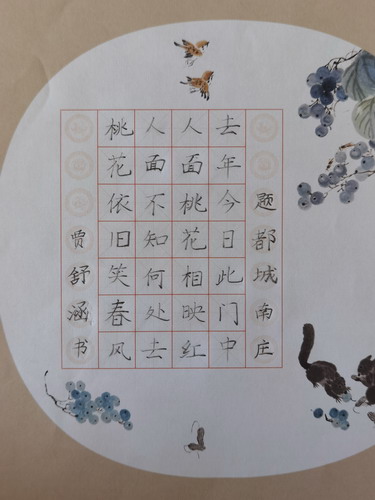 题都城南庄
去年今日此门中
人面桃花相映红
人面不知何处去
桃花依旧笑春风
贾舒涵书